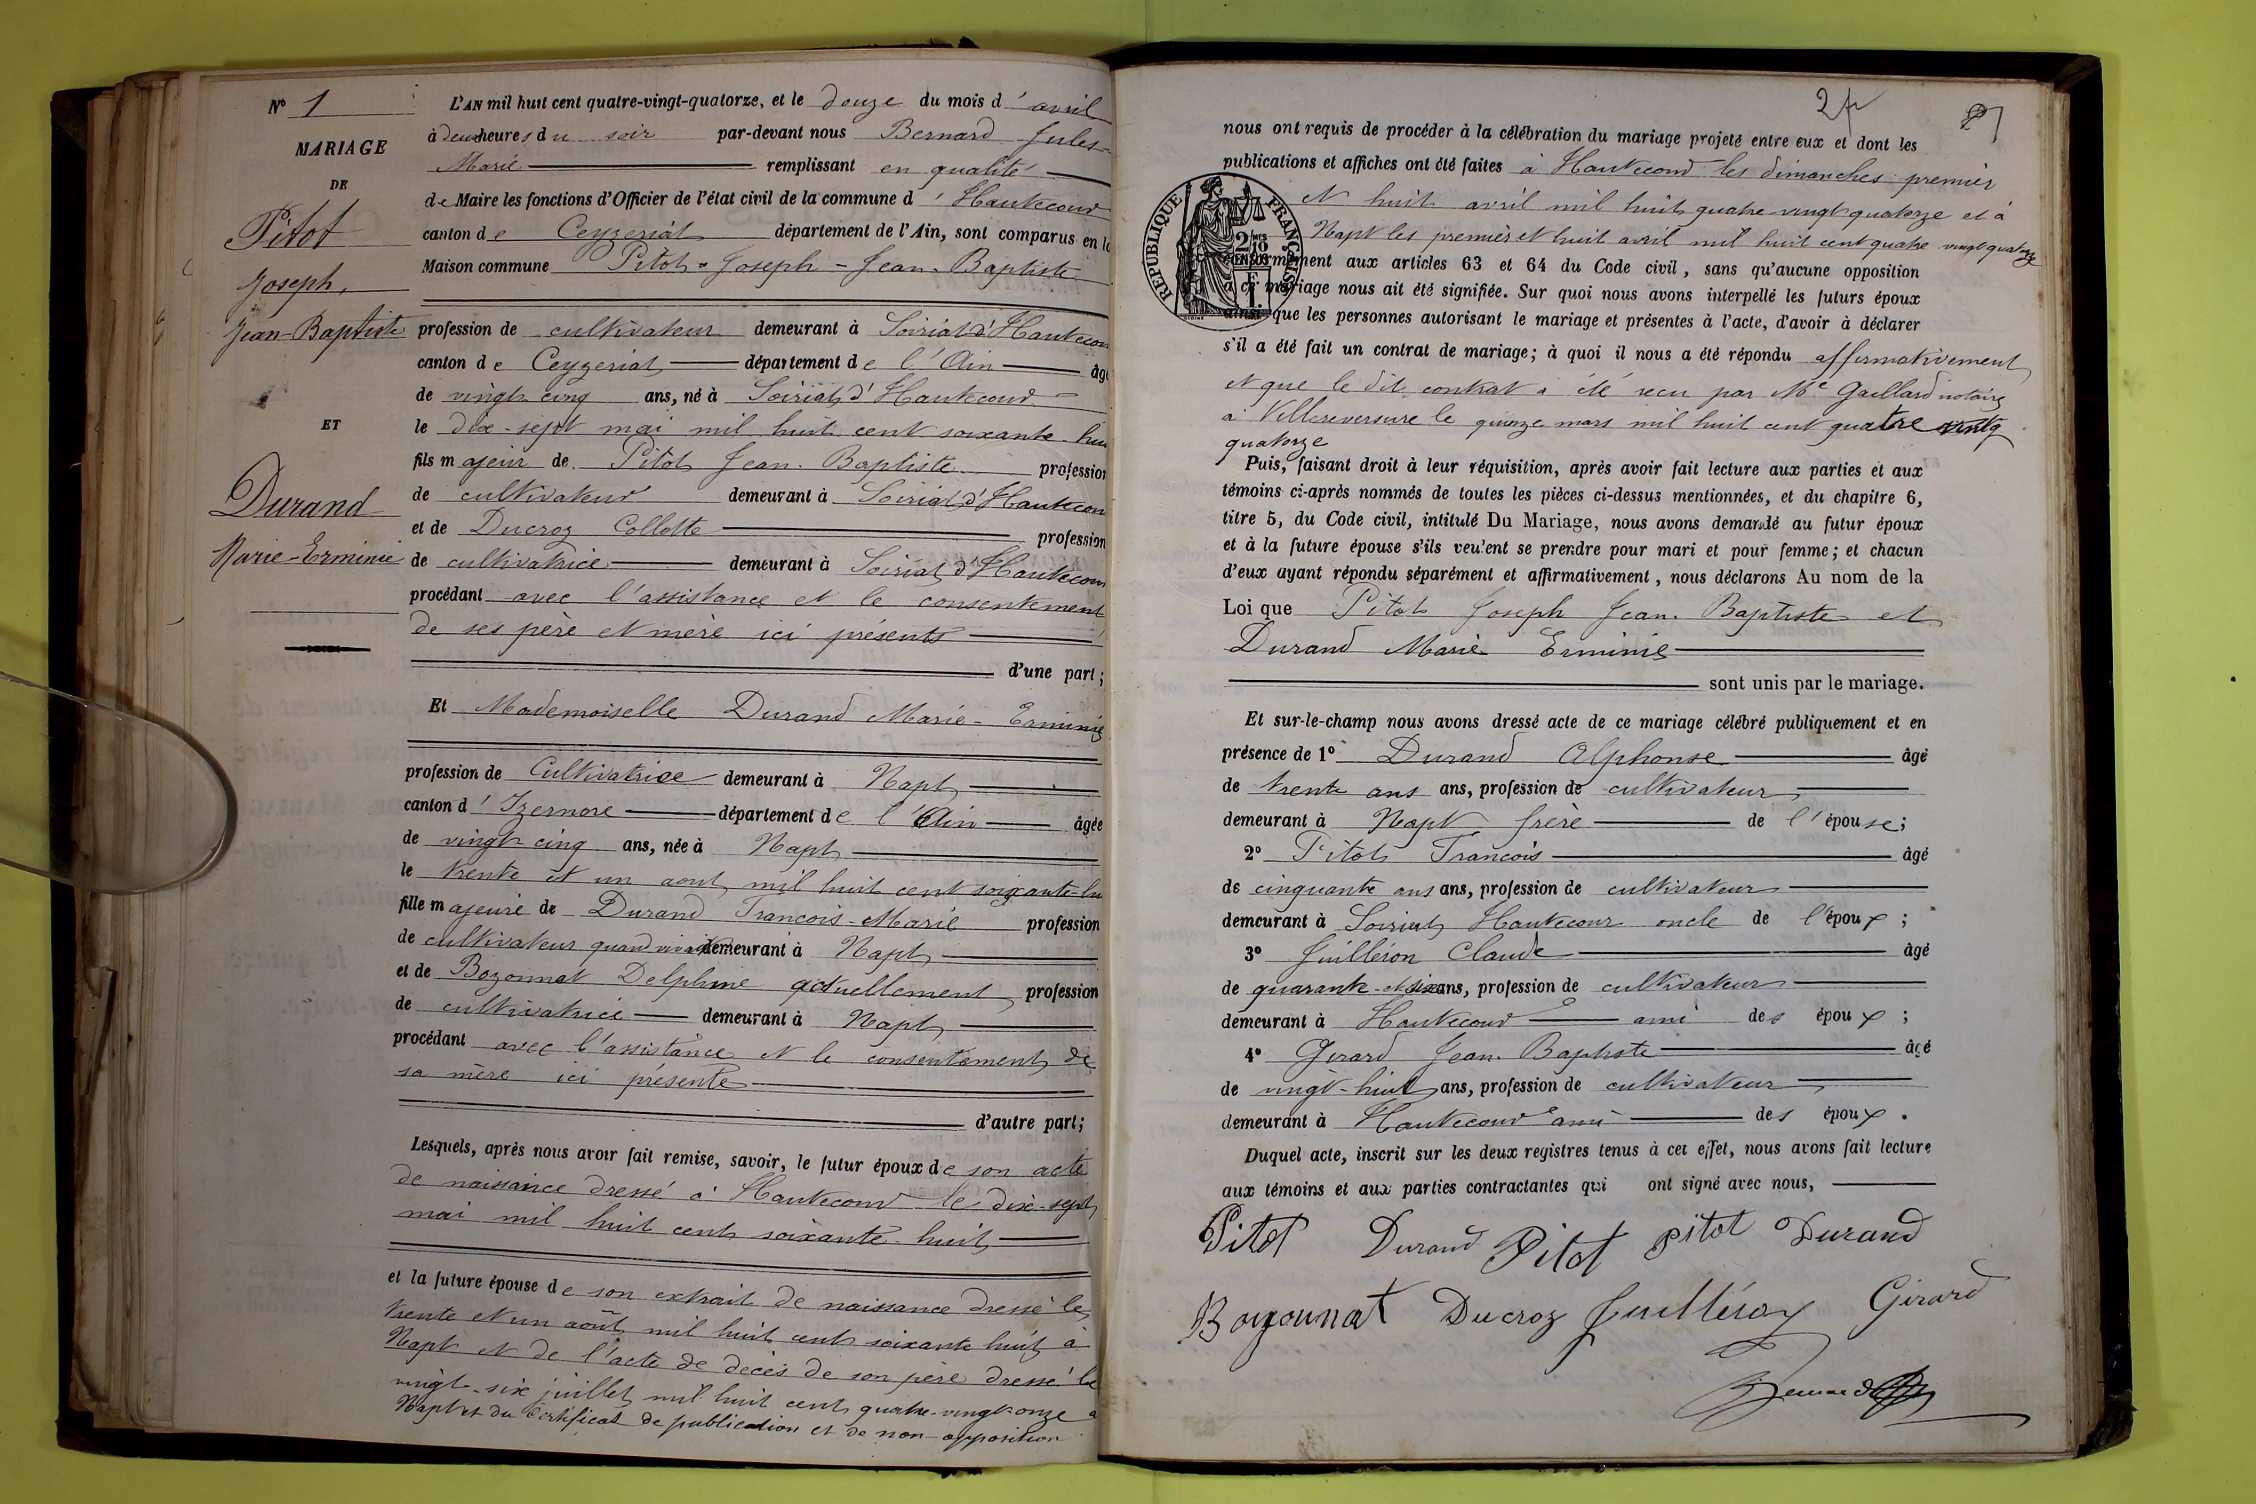 N° 1
MARIAGE
DE
Pitot
Joseph,
Jean-Baptiste
ET
Durand
Marie-Erminie
L'AN mil huit cent quatre-vingt-quatorze, et le douze du mois d'avril
à deux heures du soir par-devant nous Bernard Jules-
Marie remplissant en qualité
de Maire les fonctions d'Officier de l'état civil de la commune d'Hautecour
canton de Ceyzeriat département de l'Ain, sont comparus en la
Maison commune Pitot - Joseph - Jean-Baptiste
profession de cultivateur demeurant à Soiriat d'Hautecour
canton de Ceyzeriat département de l'Ain âgé
de vingt cinq ans, né à Soiriat d'Hautecour
le dix-sept mai mil huit cent soixante-hui
fils majeur de Pitot Jean-Baptiste profession
de cultivateur demeurant à Soiriat d'Hautecour
et de Ducroz Collette profession
de cultivatrice demeurant à Soiriat d'Hautecour
procédant avec l'assistance et le consentement
de ses père et mère ici présents
d'une part;
Et Mademoiselle Durand Marie-Erminie
profession de Cultivatrice demeurant à Napt
canton d'Izernore département de l'Ain âgée
de vingt cinq ans, née à Napt
le trente et un aout mil huit cent soixante-hu
fille majeure de Durand Francois-Marie profession
de cultivateur quand vivait demeurant à Napt
et de Bozonnat Delphine actuellement profession
de cultivatrice demeurant à Napt
procédant avec l'assistance et le consentement de
sa mère ici présente
d'autre part;
Lesquels, après nous avoir fait remise, savoir, le futur époux de son acte
de naissance dressé à Hautecour le dix-sept
mai mil huit cent soixante-huit
et la future épouse de son extrait de naissance dressé le
trente et un août mil huit cent soixante huit à
Napt et de l'acte de décès de son père dressé le
vingt-six juillet mil huit cent quatre-vingt onze à
Napt et du Certificat de publication et de non-opposition
2
nous ont requis de procéder à la célébration du mariage projeté entre eux et dont les
publications et affiches ont été faites à Hautecour les dimanches premier
et huit avril mil huit quatre-vingt quatorze et à
Napt les premier et huit avril mil huit cent quatre vingt quatorze
conformément aux articles 63 et 64 du Code civil, sans qu'aucune opposition
à ce mariage nous ait été signifiée. Sur quoi nous avons interpellé les futurs époux
ainsi que les personnes autorisant le mariage et présentes à l'acte, d'avoir à déclarer
s'il a été fait un contrat de mariage; à quoi il nous a été répondu affirmativement
et que le dit contrat a été recu par Me Gaillard notaire
à Villereversure le quinze mars mil huit cent quatre vingt
quatorze
RÉPUBLIQUE FRANÇAISE
2/10 EN SUS
Puis, faisant droit à leur réquisition, après avoir fait lecture aux parties et aux
témoins ci-après nommés de toutes les pièces ci-dessus mentionnées, et du chapitre 6,
titre 5, du Code civil, intitulé Du Mariage, nous avons demandé au futur époux
et à la future épouse s'ils veulent se prendre pour mari et pour femme; et chacun
d'eux ayant répondu séparément et affirmativement, nous déclarons Au nom de la
Loi que Pitot Joseph Jean-Baptiste et
Durand Marie Erminie
sont unis par le mariage.
Et sur-le-champ nous avons dressé acte de ce mariage célébré publiquement et en
présence de 1° Durand Alphonse âgé
de trente ans ans, profession de cultivateur
demeurant à Napt frère de l'épouse;
2° Pitot Francois âgé
de cinquante ans ans, profession de cultivateur
demeurant à Soiriat Hautecour oncle de l'époux;
3° Juilléron Claude âgé
de quarante-et six ans, profession de cultivateur
demeurant à Hautecour ami des époux;
4° Girard Jean-Baptiste âgé
de vingt-huit ans, profession de cultivateur
demeurant à Hautecour ami des époux.
Duquel acte, inscrit sur les deux registres tenus à cet effet, nous avons fait lecture
aux témoins et aux parties contractantes qui ont signé avec nous,
Pitot Durand Pitot Pitot Durand
Bozonnat Ducroz Juilléron Girard
Bernard